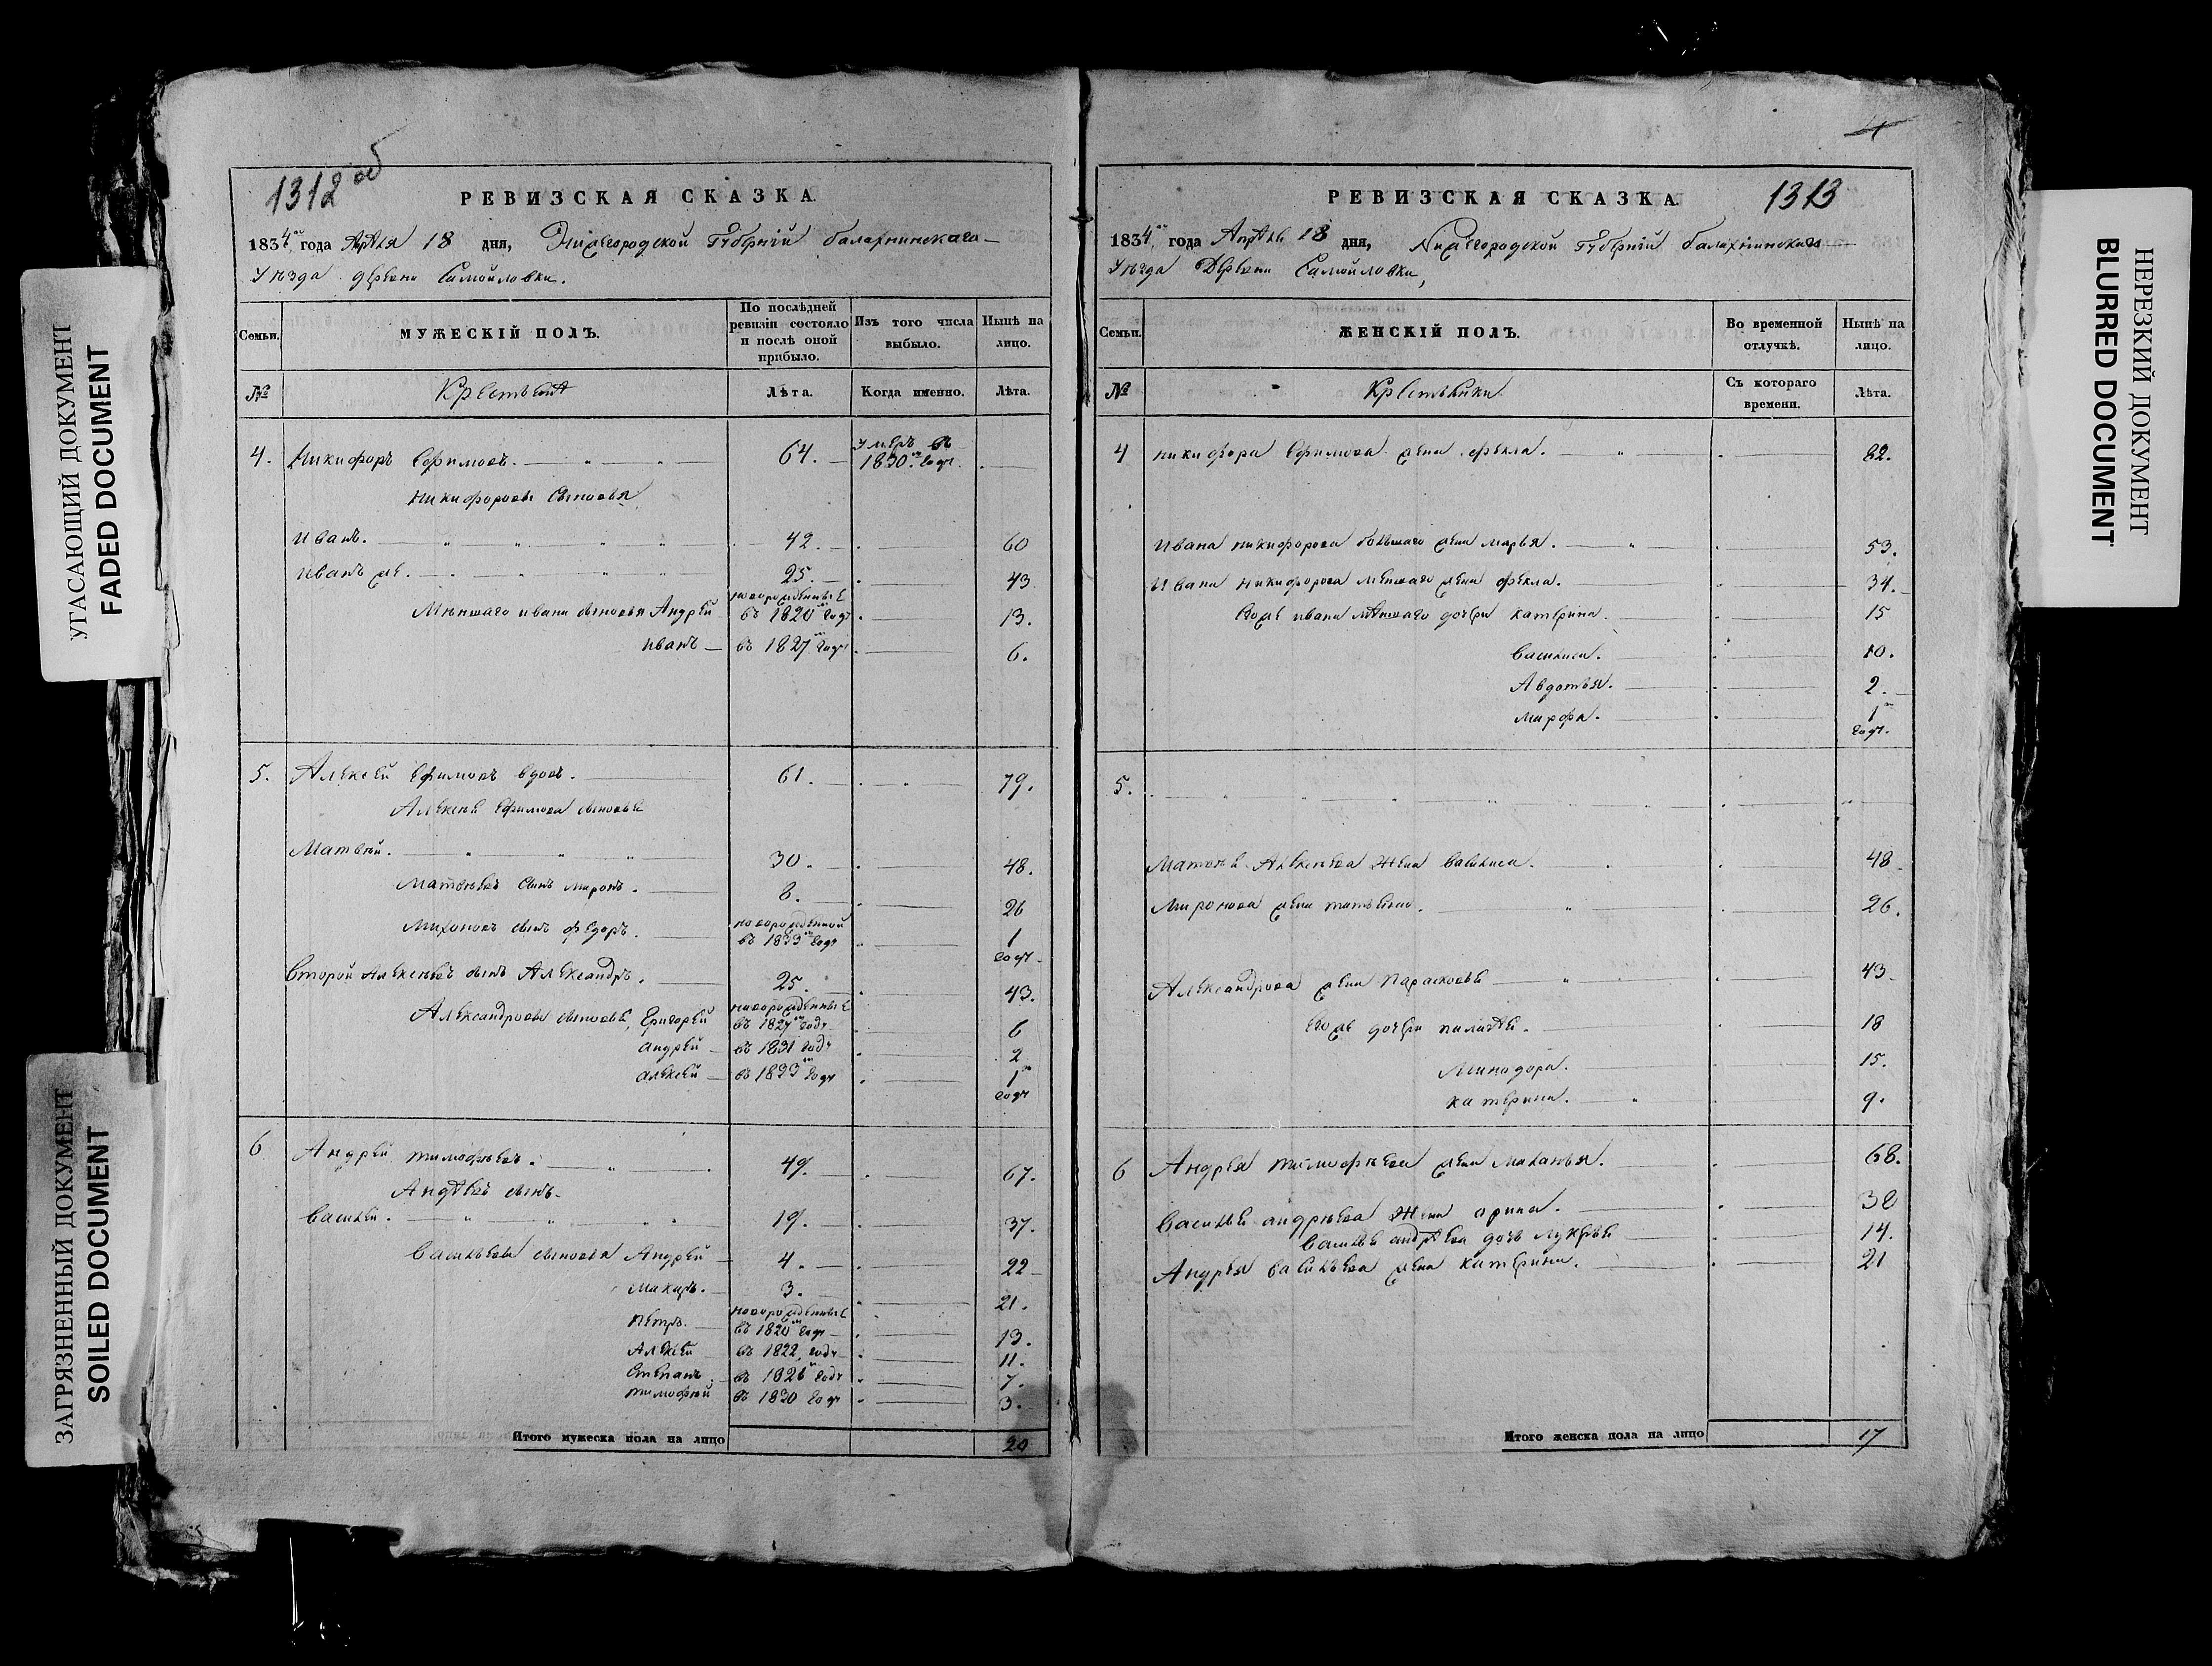 УГАСАЮЩИЙ ДОКУМЕНТ
FADED DOCUMENT
ЗАГРЯЗНЕННЫЙ ДОКУМЕНТ
SOILED DOCUMENT
1312 об
РЕВИЗСКАЯ СКАЗКА.
1834 года Апреля 18 дня, Нижегородской Губернии балахнинскаго
Уезда деревни Самойловки.
Семьи. МУЖЕСКІЙ ПОЛЪ. По послѣдней ревизіи состояло и послѣ оной прибыло. Изъ того числа выбыло. Нынѣ на лицо.
№ Крестьяня Лѣта. Когда именно. Лѣта.
4. Никифоръ Ефимовъ. 64. умеръ въ 1830 годч.
Никифоровы сыновья
Иванъ. 42. 60
Иванъ же. 25. 43
Меншаго ивана сыновья Андрей новорожденные въ 1820 годч 13.
иванъ въ 1827 годч 6.
5. Алексей Ефимовъ вдовъ. 61. 79.
Алексея Ефимова сыновье
Матвѣй. 30. 48.
Матвѣевъ сынъ миронъ. 8. 26
Мироновъ сынъ федоръ. новорожденной въ 1833 годч 1 годч
Второй Алексѣевъ сынъ Александръ. 25. 43.
Александровы сыновье, Григорей новорожденные въ 1827 годч 6
андрей въ 1831 годч 2
алексей въ 1833 годч 1 годч
6 Андрей тимофѣевъ. 49. 67.
Андреевъ сынъ
Василей. 19. 37.
Васильевы сыновья Андрей 4. 22
Макаръ. 3. 21.
Петръ. новорожденные въ 1820 годч 13.
Алексей въ 1822 годч 11.
Степанъ въ 1826 годч 7.
тимофей въ 1830 годч 3.
Итого мужеска пола на лицо 20
4
РЕВИЗСКАЯ СКАЗКА. 1313
1834 года Апреля 18 дня, Нижегородской Губернии балахнинскаго
Уезда Деревни Самойловки,
Семьи. ЖЕНСКІЙ ПОЛЪ. Во временной отлучкѣ. Нынѣ на лицо.
№ Крестьянки Съ котораго времени. Лѣта.
4 никифора Ефимова жена фекла. 82.
Ивана никифорова большаго жена марья. 53.
Ивана Никифорова меншаго жена фекла. 34.
Евоже ивана меншаго дочери катерина. 15
Василиса. 10.
Авдотья. 2.
Марфа. 1 годч.
5.
Матвѣя Алексѣева жена василиса. 48
Миронова жена татьяна. 26.
Александрова жена Парасковье 43
Евоже дочери пилагѣя. 18
Минодора. 15.
катерина. 9.
6 Андрея тимофѣева жена Маланья. 68.
Василья андрѣева жена орина. 38
Василья андрѣева дочь лукерья 14.
Андрея васильева жена катерина. 21
Итого женска пола на лицо 17
НЕРЕЗКИЙ ДОКУМЕНТ
BLURRED DOCUMENT